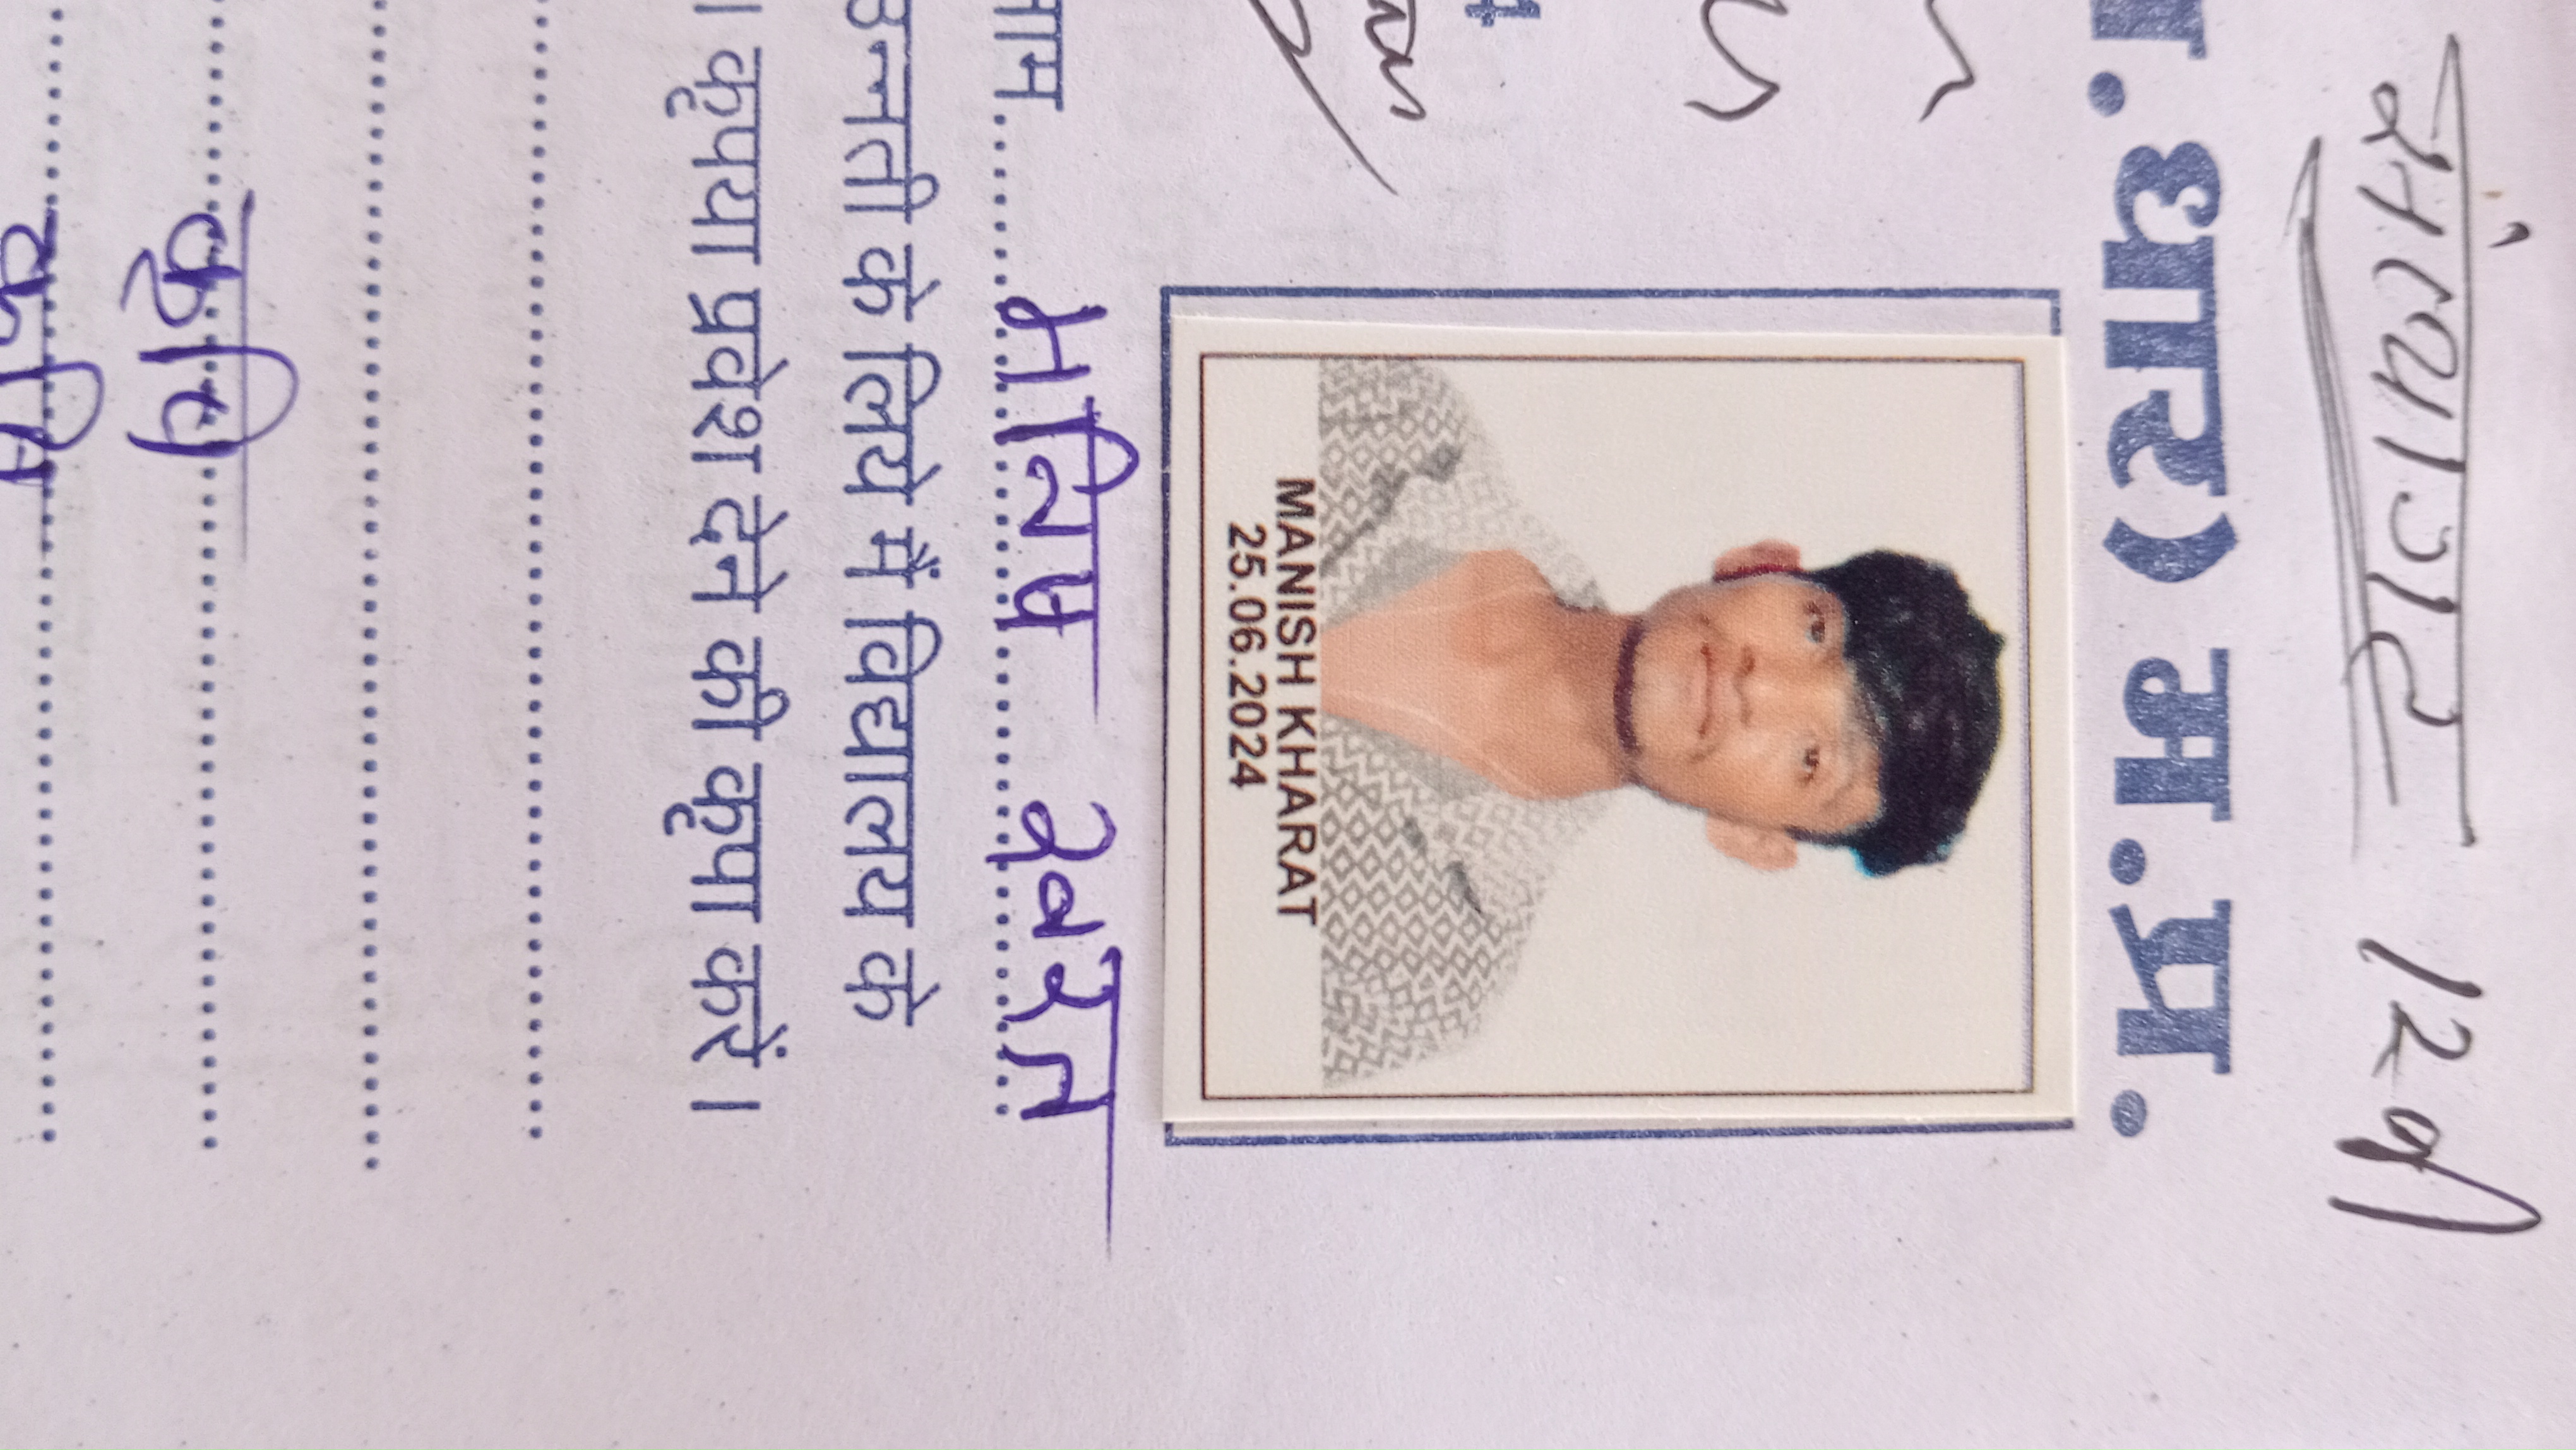 सांख्यागर 12वी
. धार) म.प्र.
MANISH KHARAT
25.06.2024
नाम.......... मनिष खरत
उन्नती के लिये मैं विद्यालय के
। कृपया प्रवेश देने की कृपा करें ।
कृषि
कृषि